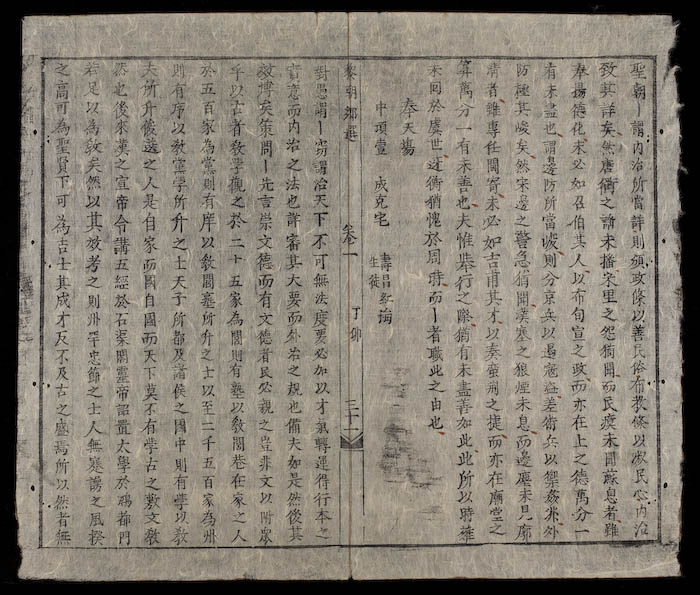 聖朝丨謂内治所當詳則頒政條以善民俗布教條以淑民心内治
致其詳矣然唐衢之謡未播宋里之怨猶聞而民瘼未聞蘇息者雖
奉揚德化未必如召伯其人以布旬宣之政而亦在上之德萬分一
有未盡也謂邊防所當嚴則分京兵以遏寇盗差術兵以禦姦非外
防極其峻矣然宋邊之警急猶聞漢塞之狼煙未息而邊塵未見廓
清者雖專任閫寄未必如吉甫其才以奏蠻荆之捷而亦在廟堂之
筭萬分一有未善也夫惟舉行之際猶有未盡善如此此所以時雍
未回於虞世逑衡猶愧於周時而丨者職此之由也
奉天塲
中項壹 成克宅 壽昌
生徒
黎朝鄉選 卷一 丁卯 三十二
對愚謂丨竊謂治天下不可無法度要必加以才氣轉運得行本之
實意而内治之法也詳審其大要而外治之規也備夫如是然後其
效博矣策問丨先言崇文德而有文德者民必親之豈非文以附衆
乎以古者教學觀之於二十五家為閭則有塾以敎閭巷在家之人
於五百家為黨則有庠以敎閭塾所升之士以至二千五百家為州
則有序以敎黨學所升之士天子所都及諸侯之國中則有學以敎
夫所升俊选之人是自家而國自國而天下莫不有學古之敷文敎
然也後來漢之宣帝令講五經於石渠閣靈帝詔置太學於鴻都門
若足以為敎矣然以其效考之則州罕忠節之士人無蹇諤之風揆
之高可為聖賢下可為吉士其成才反不及古之盛焉所以然者無